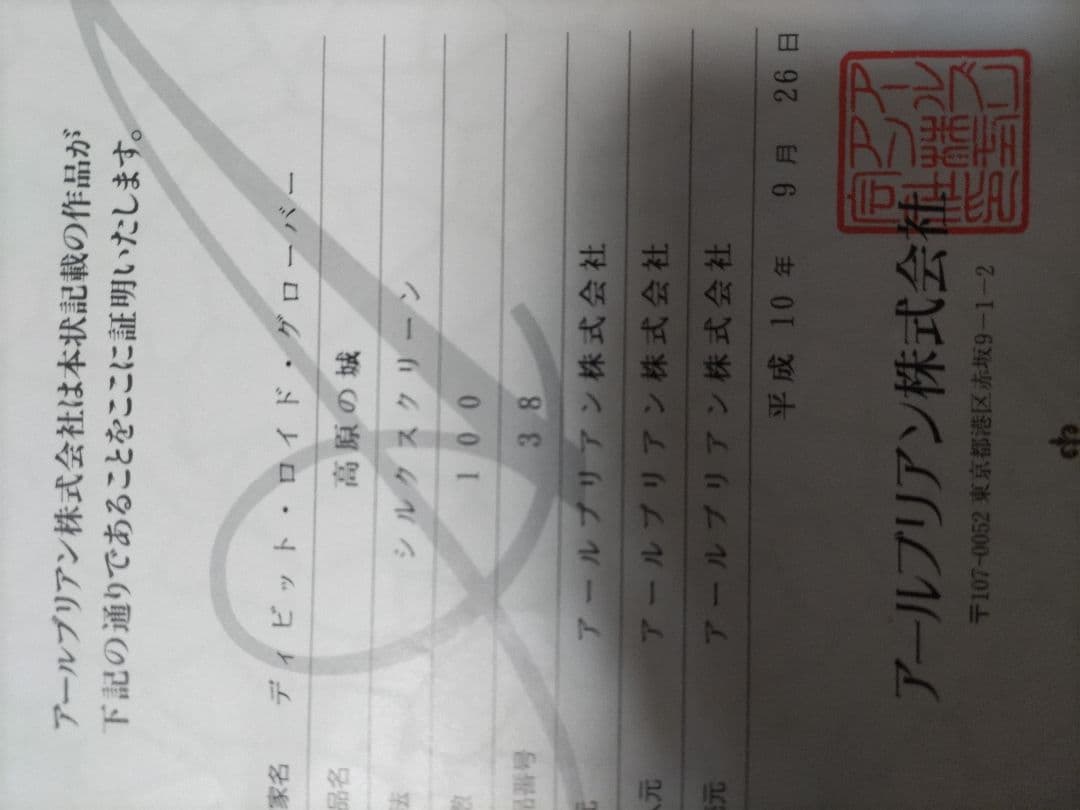 アールブリアン株式会社は本状記載の作品が
下記の通りであることをここに証明いたします。
家名 ディビット・ロイド・グローバー
品名 高原の城
法 シルクスクリーン
数 100
品番号 38
元 アールブリアン株式会社
元 アールブリアン株式会社
元 アールブリアン株式会社
平成10年 9月 26日
アールブリアン株式会社
〒107-0052 東京都港区赤坂9-1-2